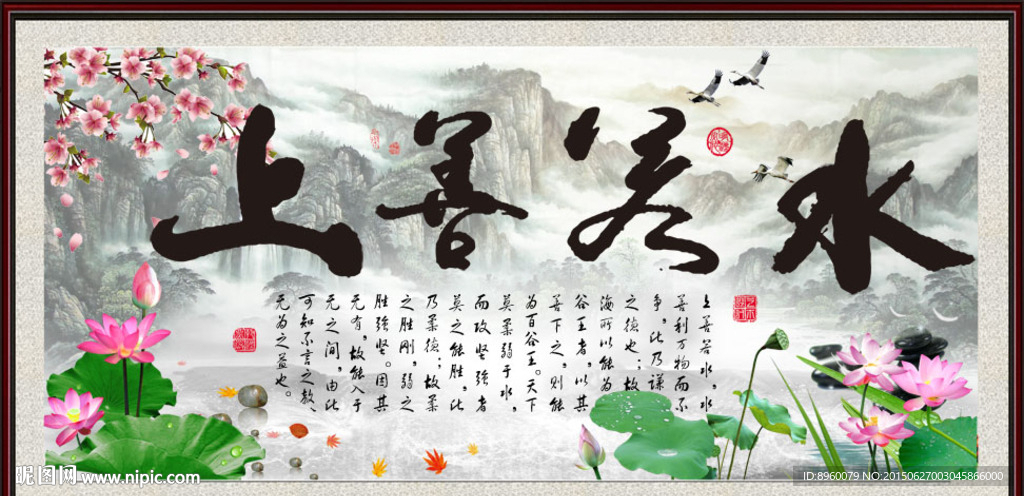 上善若水
上善若水，水
善利万物而不
争，此乃谦
之德也；故
海所以能为
谷王者，以其
善下之，则能
为百谷王。天下
莫柔弱于水，
而攻坚强者
莫之能胜，此
乃柔德；故柔
之胜刚，弱之
胜强坚。因其
无有，故能入于
无之间，由此
可知不言之教、
无为之益也。
昵图网 www.nipic.com
ID:8960079 NO:20150627003045866000